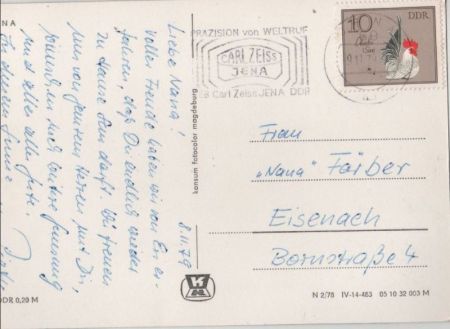 PRÄZISION von WELTRUF
CARL ZEISS
JENA
B Carl Zeiss JENA DDR
10
DDR
Liebe Nana!
8.11.79
Voller Freude haben wir von
fahren, daß Du endlich wieder
zu Hause sein darfst. Wir freuen
uns von ganzem Herzen mit Dir,
und weitere Genesung
und alles alles Gute.
In diesem Sinne
Frau
„Nana" Färber
Eisenach
Bornstraße 4
konsum fotocolor magdeburg
NA
DDR 0,20 M
N 2/78 IV-14-483 05 10 32 003 M